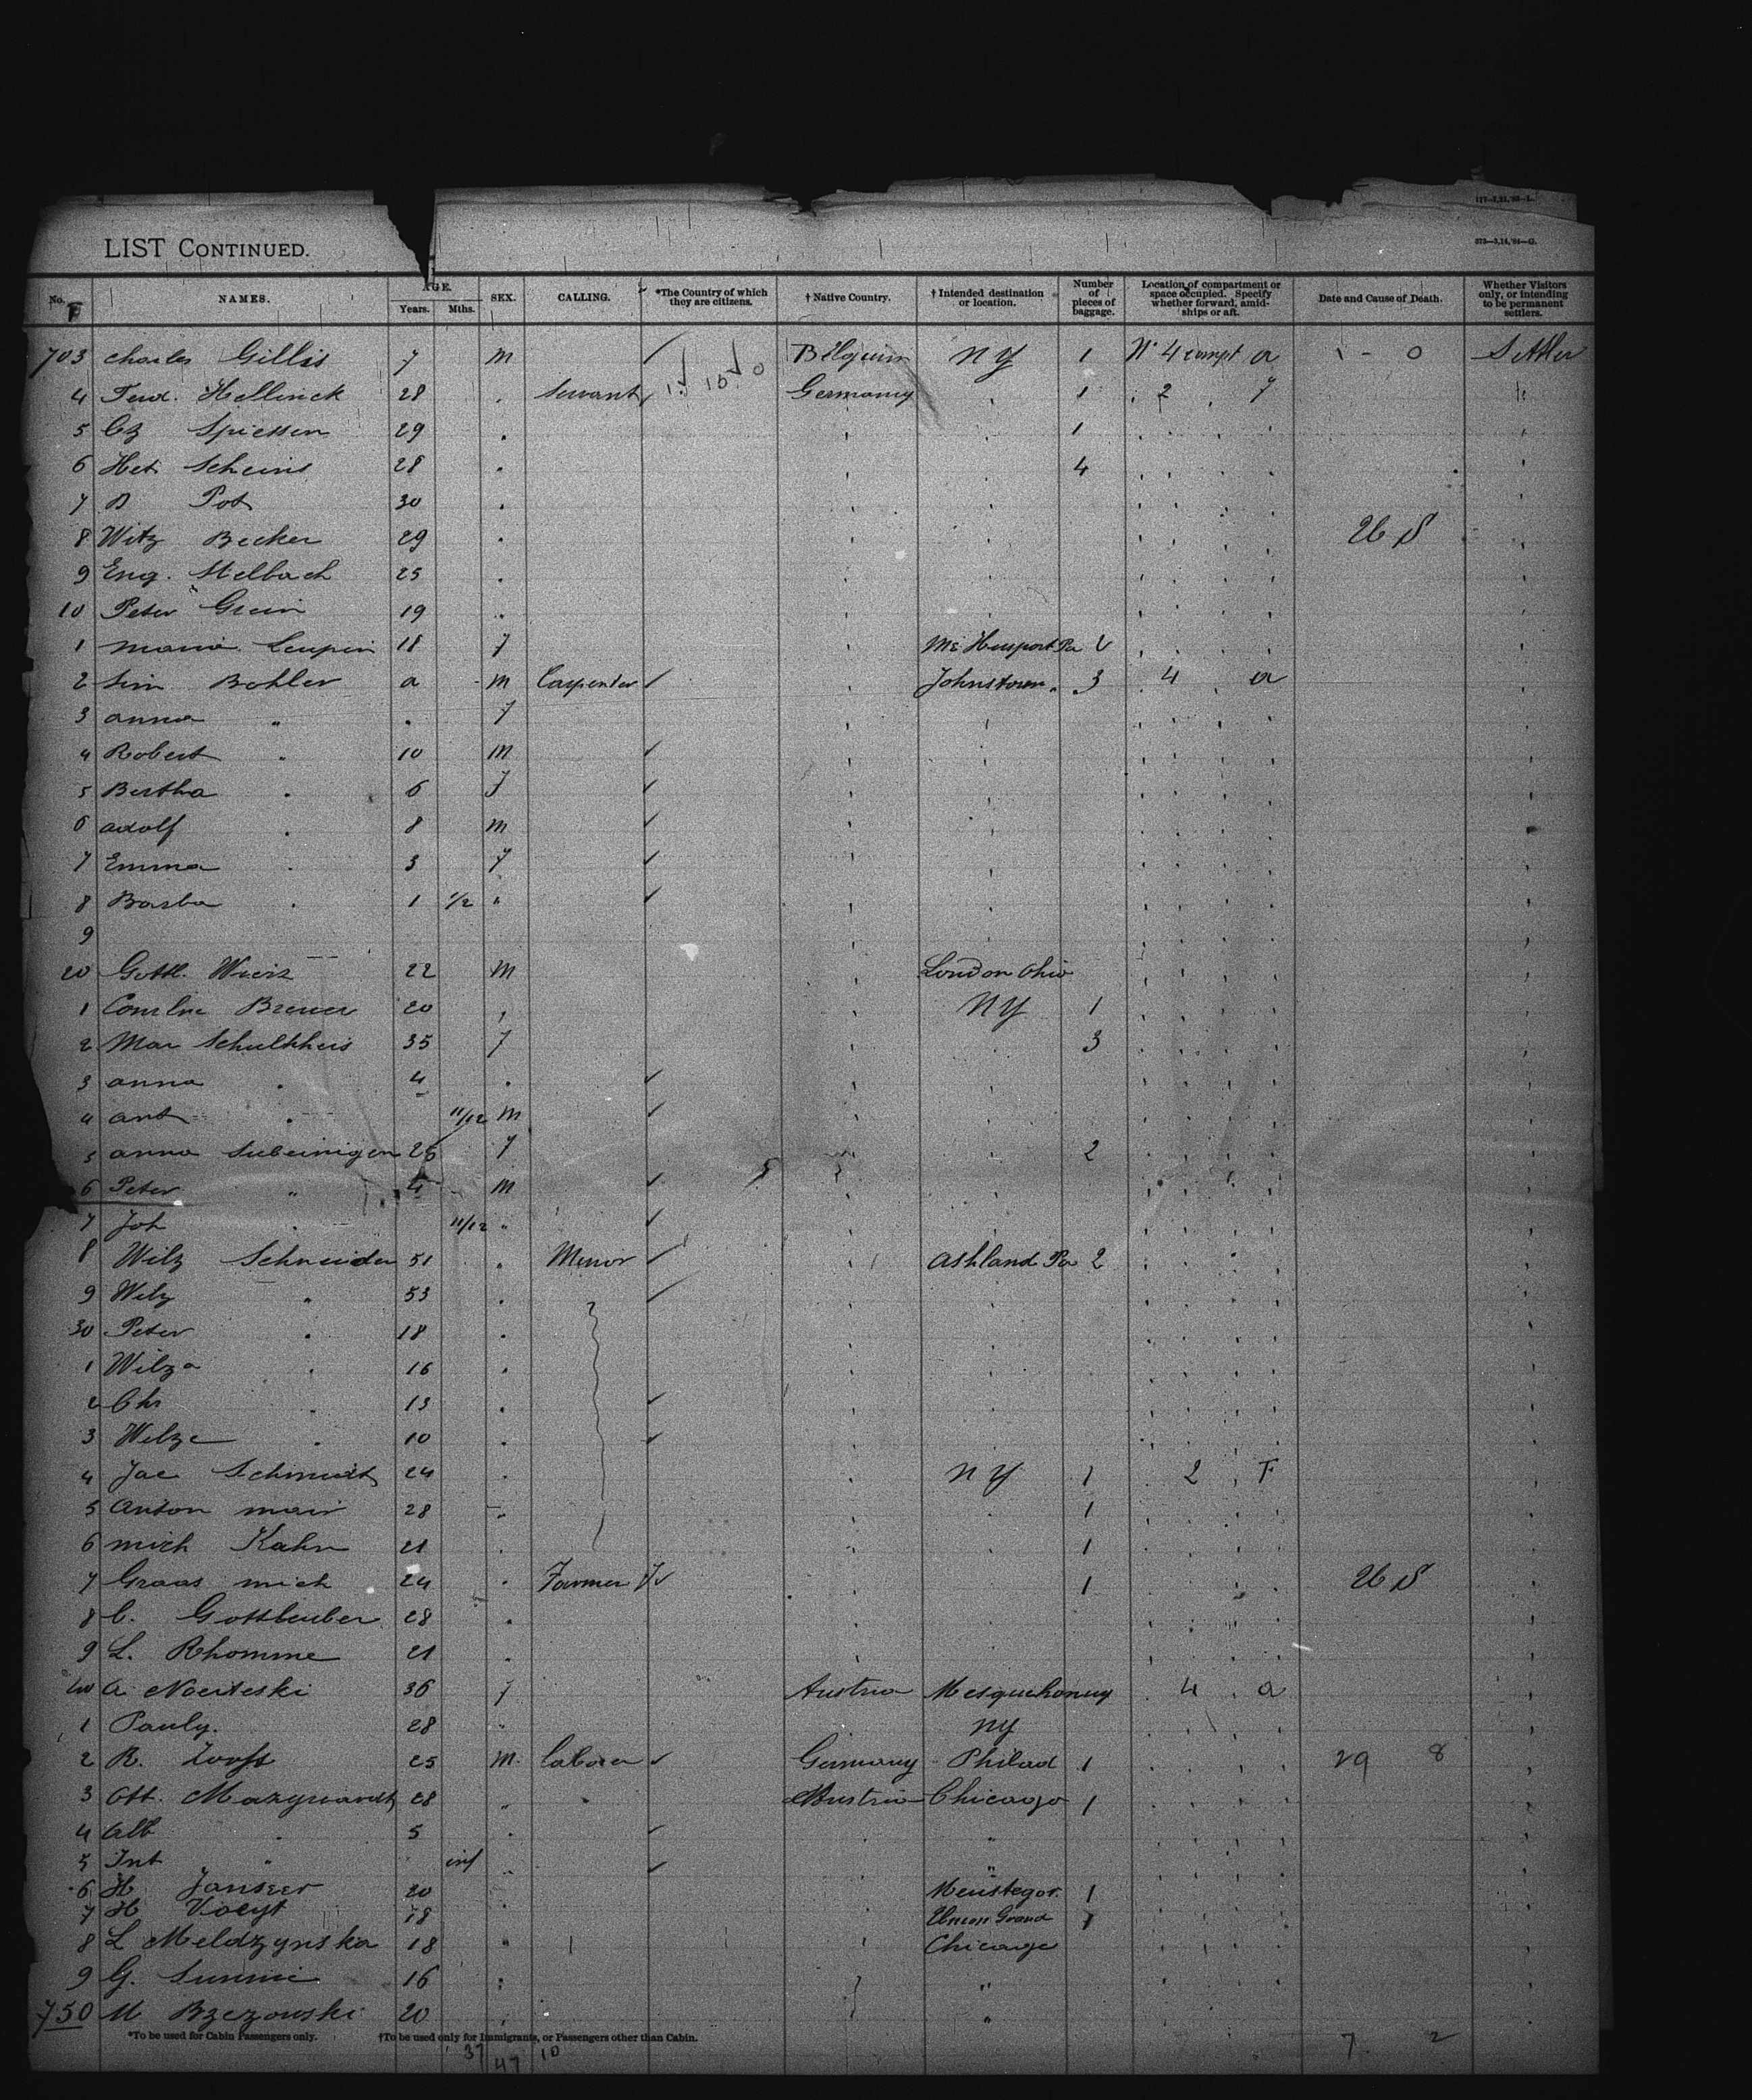 177—7,21,'93—L.
373—3,14,'94—G.
LIST CONTINUED.
No. NAMES. AGE. Years. Mths. SEX. CALLING. *The Country of which they are citizens. † Native Country. † Intended destination or location. Number of pieces of baggage. Location of compartment or space occupied. Specify whether forward, amidships or aft. Date and Cause of Death. Whether Visitors only, or intending to be permanent settlers.
703 Charles Gillis 7 m Belguim NY 1 No 4 compt a Settler
4 Ferd. Hellinck 28 Servant Germany 1 2 f
5 Spiessen 29 1
6 Het Scheins 28 4
7 Pot 30
8 Witz Becker 29 26 S
9 Eng. Stelbach 25
10 Peter Grein 19
1 Maria Leupin 18 f
2 Sim Bohler a m Carpenter Johnstown 3 4 a
3 anna " " f
4 Robert " 10 m
5 Bertha " 6 f
6 adolf " 8 m
7 Emma " 3 f
8 Barba " 1 1/2 "
9
20 Gottl. Wierz 22 m London Ohio
1 Brewer 20 NY 1
2 Mar Schultheis 35 f 3
3 anna " 4
4 ant " 11/12 m
5 anna 25 f 2
6 Peter " 4 m
7 Joh " 11/12 "
8 Wilz Schneider 51 " Minor Ashland Pa 2
9 Wilz " 53
30 Peter " 18
1 Wilza " 16
2 Chr " 13
3 Wilze " 10
4 Jac Schmidt 24 NY 1 2 F
5 Anton mair 28 1
6 mich Kahn 21 1
7 Graas mich 24 Farmer 1 26 S
8 C. 28
9 L. Rhomme 21
40 a. 36 f Austria 4 a
1 Pauly. 28 NY
2 R. 25 m. Laborer Germany Philad 1 29 8
3 Ott. 28 Austria Chicago 1
4 Alb " 5 "
5 Int " inf "
6 H. Janszer 20 1
7 H Voeyt 18 Grand 1
8 L Meldzynska 18 " Chicago
9 G. 16 "
750 M Brzezowski 20 "
*To be used for Cabin Passengers only. †To be used only for Immigrants, or Passengers other than Cabin.
37 47 10 7 2